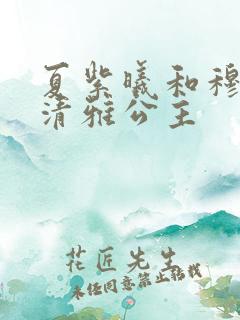 夏紫曦和穆
清雅公主
花匠先生
未经同意禁止转载